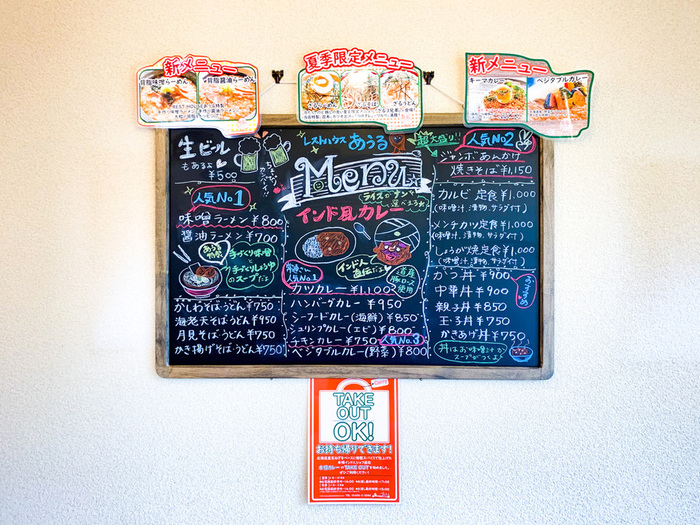 新メニュー
背脂味噌らーめん
背脂醤油らーめん
夏季限定メニュー
ざるらーめん
ざるそば
ざるうどん
新メニュー
キーマカレー
ベジタブルカレー
生ビール
もあるよ
¥500
レストハウス あうる
Menu
ライスかナン
選べます
インド風カレー
インド人
直伝だよ
道産
豚ロース
使用
人気No.1
味噌ラーメン ¥800
醤油ラーメン ¥700
手づくり味噌
と
手づくりレシピ
のスープだヨ
かしわそば・うどん ¥750
海老天そば・うどん ¥950
月見そば・うどん ¥750
かき揚げそば・うどん ¥750
人気No.1
カツカレー ¥1,100
ハンバーグカレー ¥950
シーフードカレー(海鮮) ¥850
シュリンプカレー(エビ) ¥800
チキンカレー ¥750
人気No.3
ベジタブルカレー(野菜) ¥800
超大盛り!!
人気No.2
ジャンボあんかけ
焼きそば ¥1,150
カルビ定食 ¥1,000
(味噌汁、漬物、サラダ付)
メンチカツ定食 ¥1,000
(味噌汁、漬物、サラダ付)
しょうが焼定食 ¥1,000
(味噌汁、漬物、サラダ付)
かつ丼 ¥900
中華丼 ¥900
親子丼 ¥850
玉子丼 ¥750
かきあげ丼 ¥750
おすすめ
丼はお味噌汁か
スープがつくよ
TAKE
OUT
OK!
お持ち帰りできます!